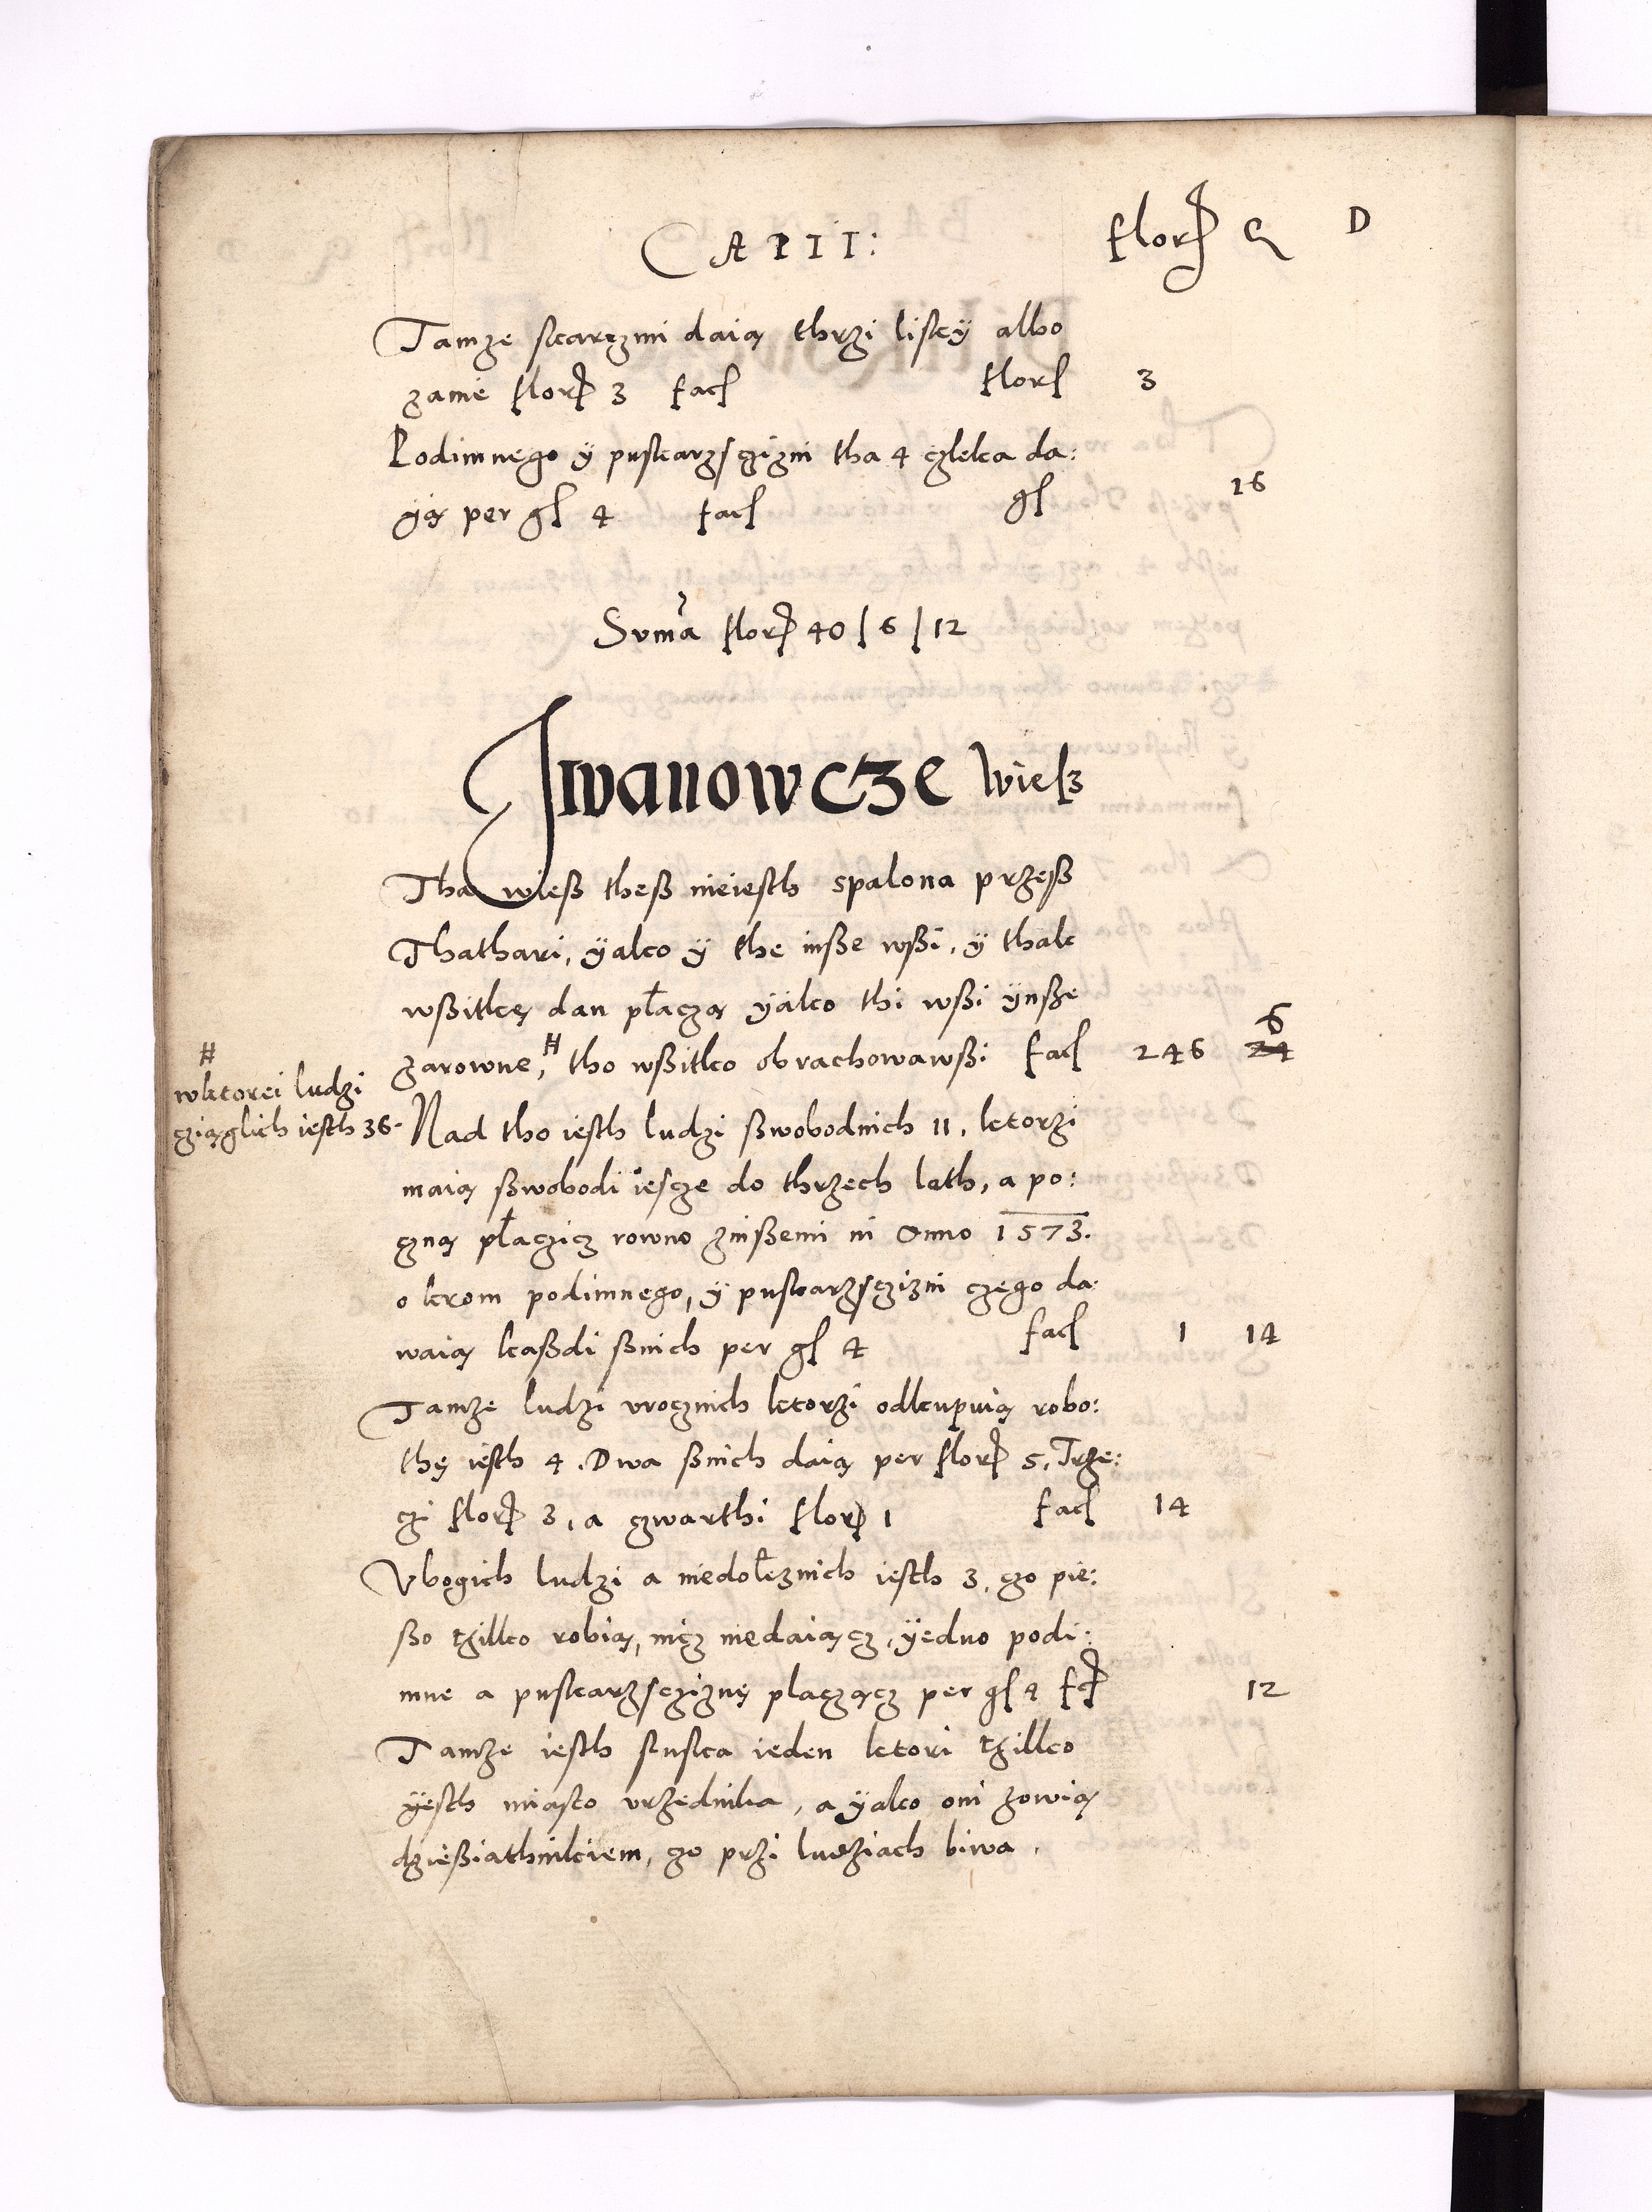 CAPII: flor G D
Tamze skarczmi daią thrzi lisky albo
zanie flor 3 fac flor 3
Podimnego y puskarzsczizni tha 4 czleka da:
yią per gł 4 fac gł 16
Suma flor 40 | 6 | 12
Iwanowcze wiesz
Tha wieß theß nieiesth spalona przeß
Thathari, yako y the inße wßi, y thak
wßitkę dan płaczą yako thi wßi ynße
zarowne, # tho wßitko obrachowawßi fac 246 6 24
#
wktorei ludzi
cziąglich iesth 36.
Nad tho iesth ludzi ßwobodnich 11, ktorzi
maią ßwobodi iescze do thrzech lath, a po:
czną płaczicz rowno zinßemi in Anno 1573.
okrom podimnego, y puskarzsczizni czego da:
waią kaßdi ßnich per gł 4 fac 1 14
Tamże ludzi urocznich ktorzi odkupuią robo:
thę iesth 4. Dwa ßnich daią per flor 5, Trze:
czi flor 3, a czwarthi flor 1 fac 14
Vbogich ludzi a niedołeznich iesth 3, czo pie:
ßo tzilko robią, nicz niedaiącz, yedno podi:
mne a puskarzscziznę placzącz per gł 4 fac 12
Tamże iesth sluska ieden ktori tzilko
yesth miasto vrzednika, a yako oni zowią
dzießiathnikiem, czo przi ludziach biwa.